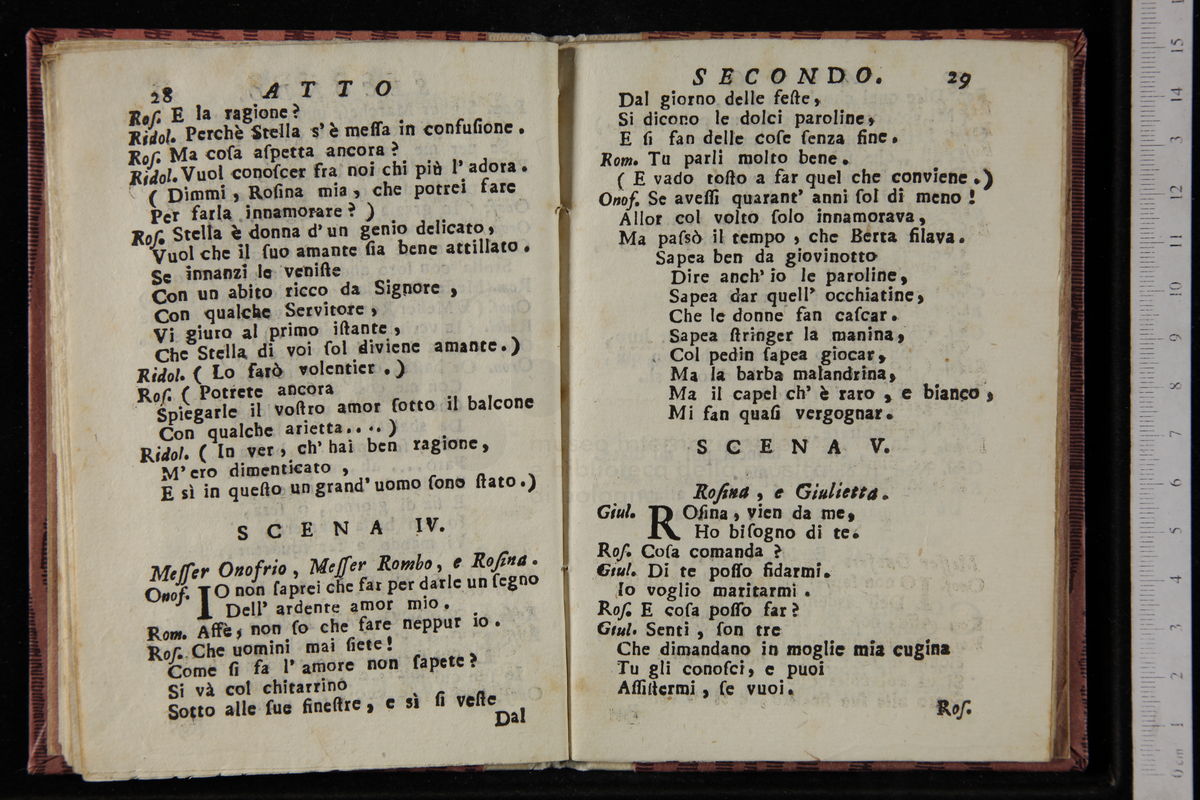 28 ATTO
Roſ. E la ragione?
Ridol. Perchè Stella s'è meſſa in confuſione.
Roſ. Ma coſa aſpetta ancora?
Ridol. Vuol conoſcer fra noi chi più l'adora.
( Dimmi, Roſina mia, che potrei fare
Per farla innamorare? )
Roſ. Stella è donna d'un genio delicato,
Vuol che il ſuo amante ſia bene attillato.
Se innanzi le veniſte
Con un abito ricco da Signore,
Con qualche Servitore,
Vi giuro al primo iſtante,
Che Stella di voi ſol diviene amante.)
Ridol. ( Lo farò volentier.)
Roſ. ( Potrete ancora
Spiegarle il voſtro amor ſotto il balcone
Con qualche arietta....)
Ridol. ( In ver, ch'hai ben ragione,
M'ero dimenticato,
E sì in queſto un grand'uomo ſono ſtato.)
SCENA IV.
Meſſer Onofrio, Meſſer Rombo, e Roſina.
Onof. IO non ſaprei che far per darle un ſegno
Dell' ardente amor mio.
Rom. Affè, non ſo che fare neppur io.
Roſ. Che uomini mai ſiete!
Come ſi fa l'amore non ſapete?
Si và col chitarrino
Sotto alle ſue fineſtre, e sì ſi veſte
Dal
SECONDO. 29
Dal giorno delle feſte,
Si dicono le dolci paroline,
E ſi fan delle coſe ſenza fine.
Rom. Tu parli molto bene.
( E vado toſto a far quel che conviene.)
Onof. Se aveſſi quarant' anni ſol di meno!
Allor col volto ſolo innamorava,
Ma paſsò il tempo, che Berta filava.
Sapea ben da giovinotto
Dire anch' io le paroline,
Sapea dar quell' occhiatine,
Che le donne fan caſcar.
Sapea ſtringer la manina,
Col pedin ſapea giocar,
Ma la barba malandrina,
Ma il capel ch' è raro, e bianco,
Mi fan quaſi vergognar.
SCENA V.
Roſina, e Giulietta.
Giul. ROſina, vien da me,
Ho biſogno di te.
Roſ. Coſa comanda?
Giul. Di te poſſo fidarmi.
Io voglio maritarmi.
Roſ. E coſa poſſo far?
Giul. Senti, ſon tre
Che dimandano in moglie mia cugina
Tu gli conoſci, e puoi
Aſſiſtermi, ſe vuoi.
Roſ.
0 cm 1 2 3 4 5 6 7 8 9 10 11 12 13 14 15